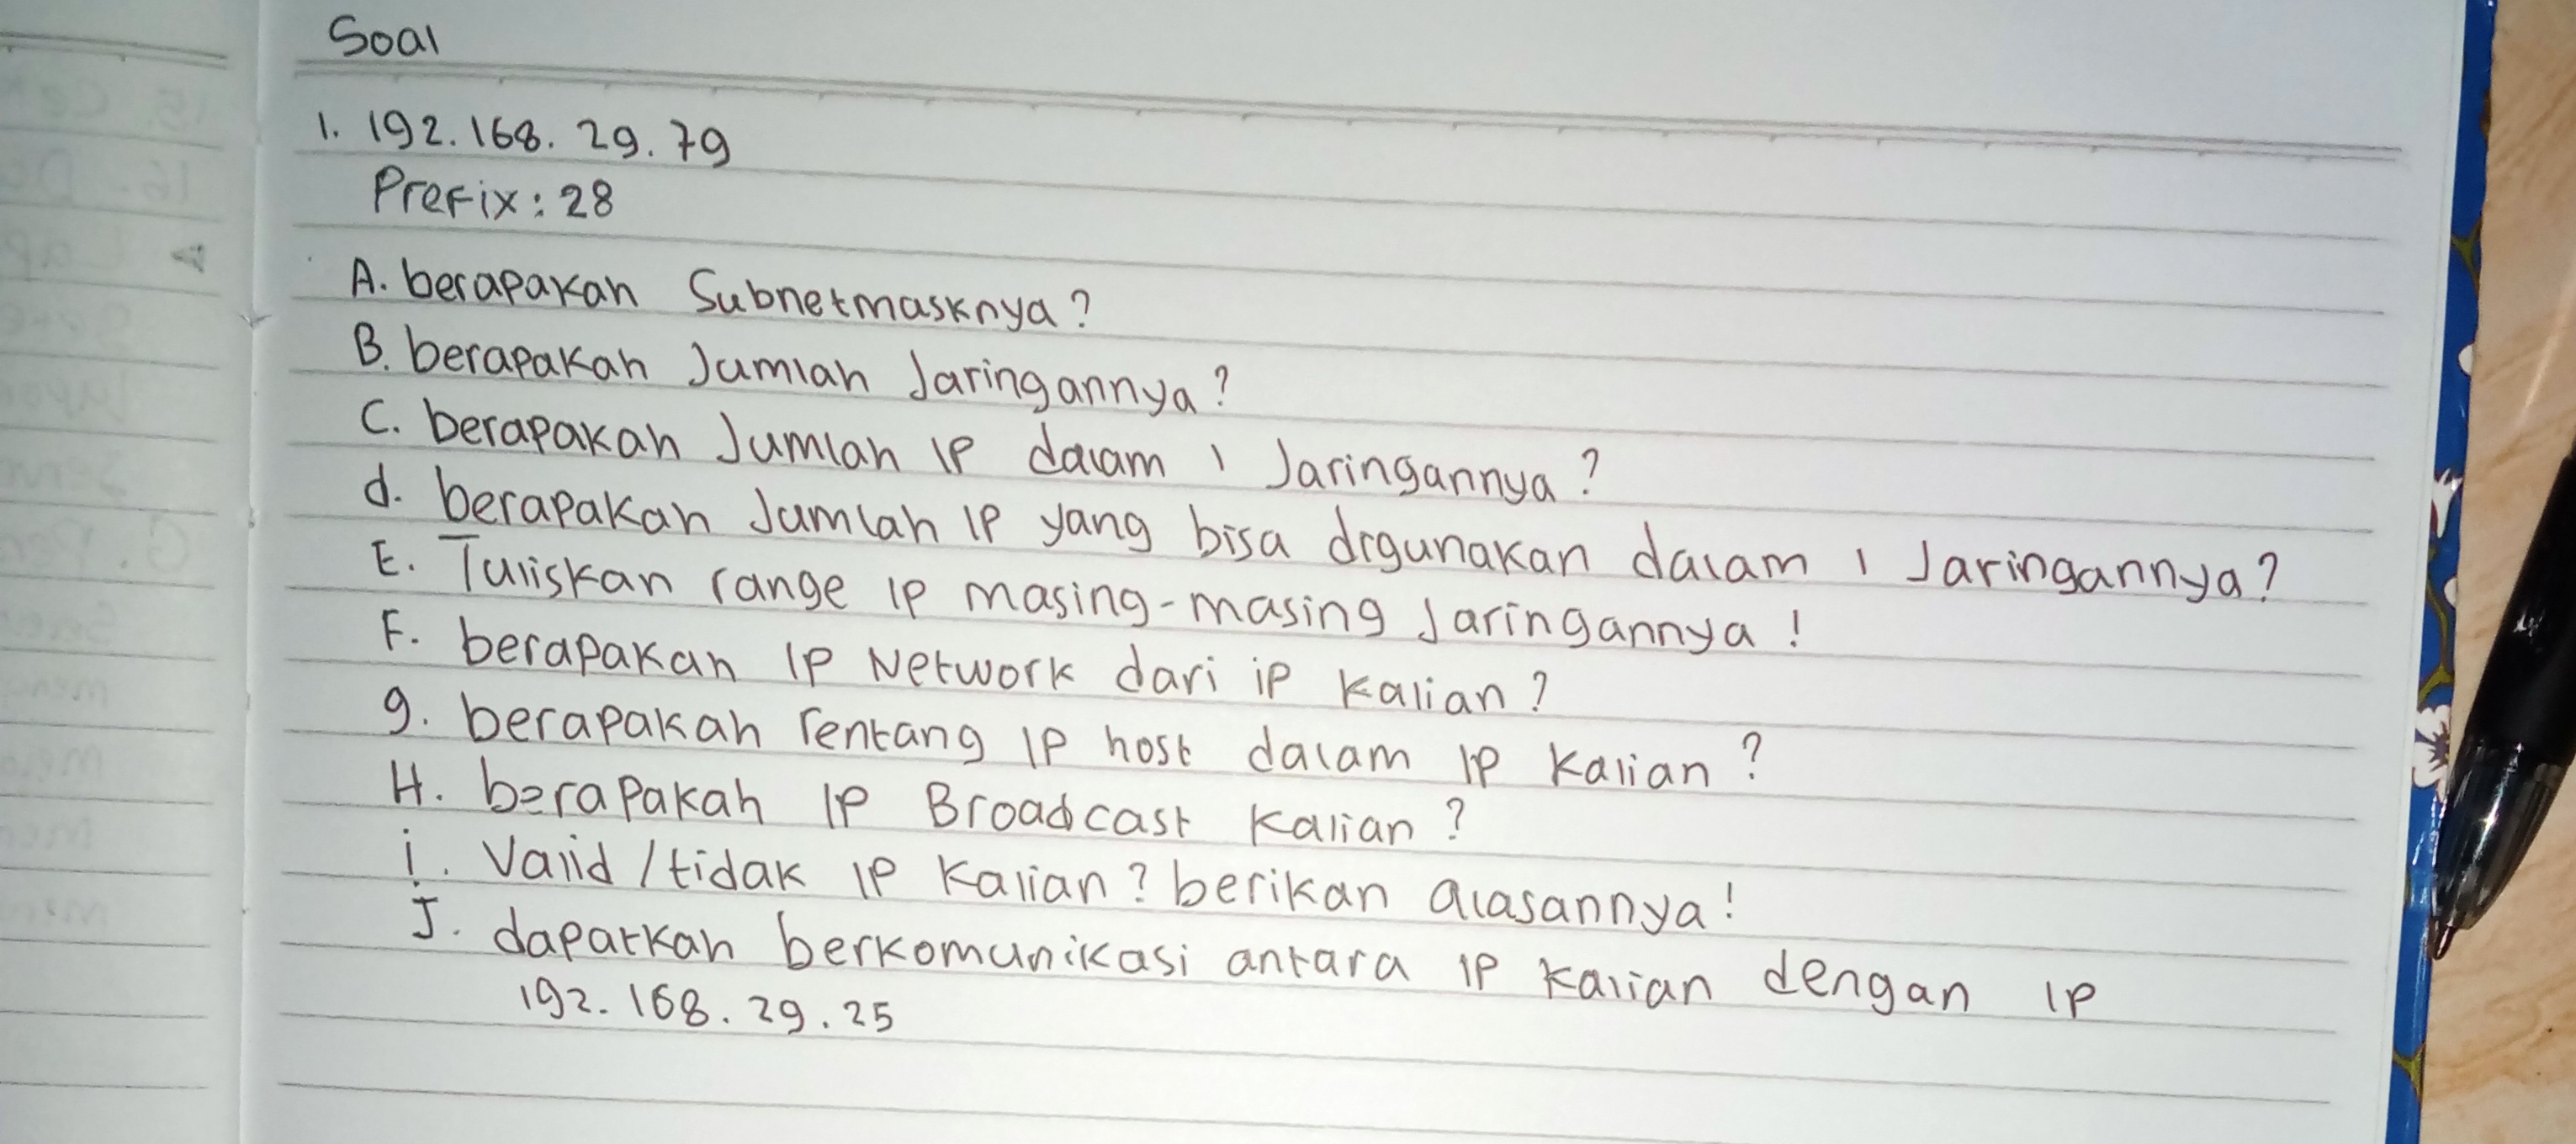 Soal
1. 192.168.29.79
Prefix: 28
A. berapakah Subnetmasknya?
B. berapakah Jumlah Jaringannya?
C. berapakah Jumlah IP dalam 1 Jaringannya?
d. berapakah Jumlah IP yang bisa digunakan dalam 1 Jaringannya?
E. Tuliskan range IP masing-masing Jaringannya!
F. berapakah IP Network dari iP Kalian?
g. berapakah rentang IP host dalam IP Kalian?
H. berapakah IP Broadcast Kalian?
i. Valid/tidak IP Kalian? berikan alasannya!
J. dapatkah berkomunikasi antara IP Kalian dengan IP
192.168.29.25